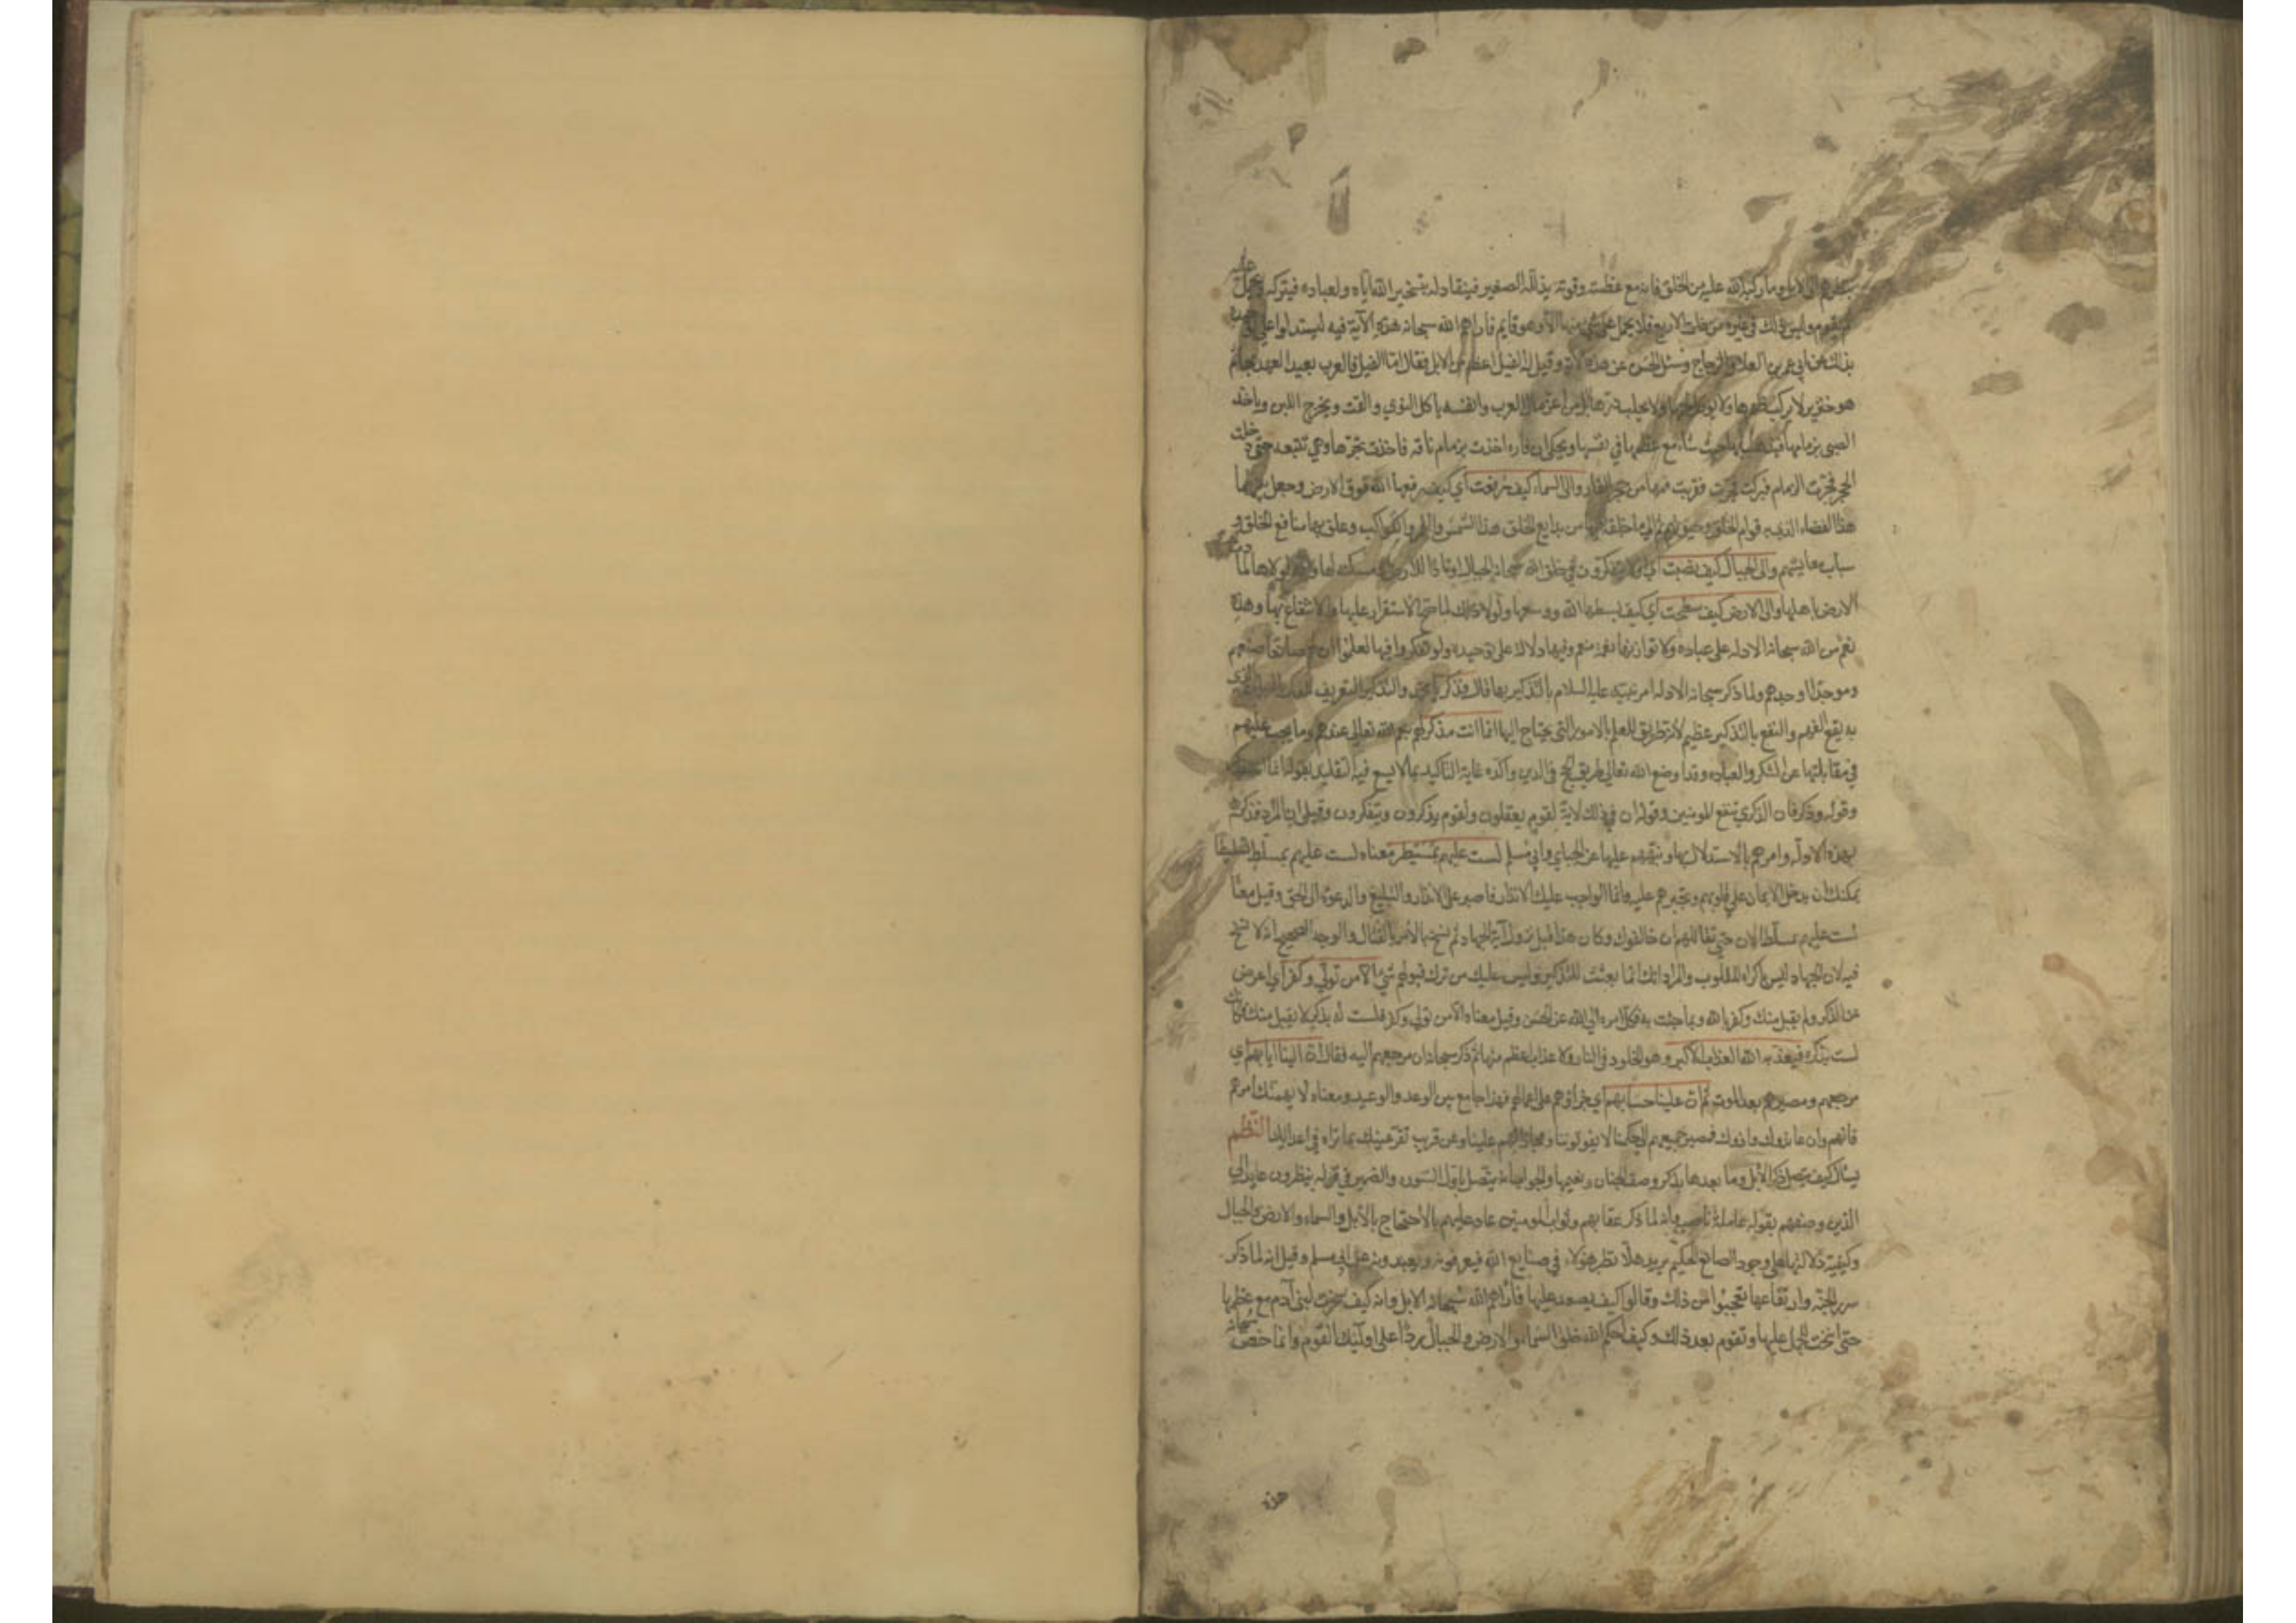 الابل وما ركبه الله عليه من الخلق فانه مع عظمته وقوته يذلله الصغير فينقاد له بتسخير الله اياه ولعباده فيبركه ويحمل عليه
ثم يقوم وليس ذلك في غيره من ذوات الاربع فلا يحمل على شيء منها الا وهو قايم فاراهم الله سبحانه هذه الآية فيه ليستدلوا على توحيده
بذلك عن ابي عمرو بن العلا والزجاج وسئل الحسن عن هذه الآية وقيل له الفيل اعظم من الابل فقال اما الفيل فالعرب بعيدا لعهد بها ثم
هو خنزير لا يركب ظهرها ولا يوكل لحمها ولا يحلب درها والابل من اعز مال العرب وانفسه ياكل النوي والقت ويخرج اللبن وياخذ
الصبي بزمامها فيذهب بها حيث شاء مع عظمها في نفسها ويحكى ان فارة اخذت بزمام ناقة فاخذت تجرها وهي تتبعه حتى دخلت
الحجر فجرت الزمام فبركت فجرت فقربت فمها من حجر الفار والى السماء كيف رفعت اي كيف رفعها الله فوق الارض وجعل بينهما
هذا الفضاء الذي به قوام الخلق وحيوتهم الى ما خلقه فيها من بدايع الخلق هذا الشمس والقمر والكواكب وعلق بهما منافع الخلق و
سباب معايشهم والى الجبال كيف نصبت اي اولا يتفكرون في خلق الله سبحانه الجبال اوتادا للارض ومسكنه لها وانه لولاها لمادت
الارض باهلها والى الارض كيف سطحت اي كيف بسطها الله ووسعها ولولا ذلك لما صح الاستقرار عليها والانتفاع بها وهذه
نعم من الله سبحانه الادلة على عباده ولا توازيها نعمة منعم وفيها دلالة على توحيده ولو تفكروا فيها لعلموا ان لهم صانعا صنعهم
وموجدا اوجدهم ولما ذكر سبحانه الادلة امر نبيه عليه السلام بالتذكير بها فقال فذكر يا محمد والتذكير التعريف للذكر بالبيان الذي
به يقع الفهم والنفع بالتذكير عظيم لانه طريق للعلم بالامور التي يحتاج اليها انما انت مذكر لهم بنعم الله تعالى عندهم وما يجب عليهم
في مقابلتها من الشكر والعبادة وقد اوضح الله تعالى طريق الحج في الدين واكده غاية التاكيد بما لا يسع فيه التقليد بقوله انما انت مذكر
وقوله وذكر فان الذكرى تنفع المومنين وقوله ان في ذلك لاية لقوم يعقلون ولقوم يذكرون ويتفكرون وقيل ان المراد فذكرهم
بهذه الادلة وامرهم بالاستدلال بها ونبههم عليها عن الجباي وابي مسلم لست عليهم بمسيطر معناه لست عليهم بمسلط تسليطا
يمكنك ان تدخل الايمان على قلوبهم وتجبرهم عليه وانما الواجب عليك الانذار فاصبر على الانذار والتبليغ والدعوة الى الحق وقيل معناه
لست عليهم بمسلط الان حتى تقاتلهم ان خالفوك وكان هذا قبل نزول آية الجهاد ثم نسخ بالامر بالقتال والوجه الصحيح انه لا نسخ
فيه لان الجهاد ليس باكراه للقلوب والمراد انك انما بعثت للتذكير وليس عليك من ترك قبولهم شيء الا من تولى وكفر اي اعرض
عن الذكر ولم يقبل منك وكفر بالله وبما جئت به فكل امره الى الله عن الحسن وقيل معناه الا من تولى وكفر فلست له بمذكر لانه لا يقبل منك فكانك
لست بذكره فيعذبه الله العذاب الاكبر وهو الخلود في النار ولا عذاب اعظم منها ثم ذكر سبحانه ان مرجعهم اليه فقال ان الينا ايابهم اي
مرجعهم ومصيرهم بعد الموت ثم ان علينا حسابهم اي جزاؤهم على اعمالهم فهذا جامع بين الوعد والوعيد ومعناه لا يهمنك امرهم
فانهم وان عاندوك واذوك فمصير جميعهم الى حكمنا لا يفوتوننا ومجازاتهم علينا وعن قريب تقر عينك بما تراه في اعدائك النظم
يسال كيف يتصل ذكر الابل وما بعدها بذكر وصف الجنان ونعيمها والجواب انه يتصل باول السورة والضمير في قوله ينظرون عايد الى
الذين وصفهم بقوله عاملة ناصبة وانه لما ذكر عقابهم وثواب المومنين عاد عليهم بالاحتجاج بالابل والسماء والارض والجبال
وكيفية دلالتها على وجود الصانع الحكيم يريد هلا نظر هؤلاء في صنايع الله فيعرفونه ويعبدونه عن ابي مسلم وقيل انه لما ذكر
سرر الجنة وارتفاعها تعجبوا من ذلك وقالوا كيف يصعد عليها فاراهم الله سبحانه الابل وانه كيف سخرت لبني آدم مع عظمها
حتى انيخت للحمل عليها وتقوم بعد ذلك وكيف احكم الله خلق السماء والارض والجبال ردا على اوليك القوم وانما خص سبحانه
هذه